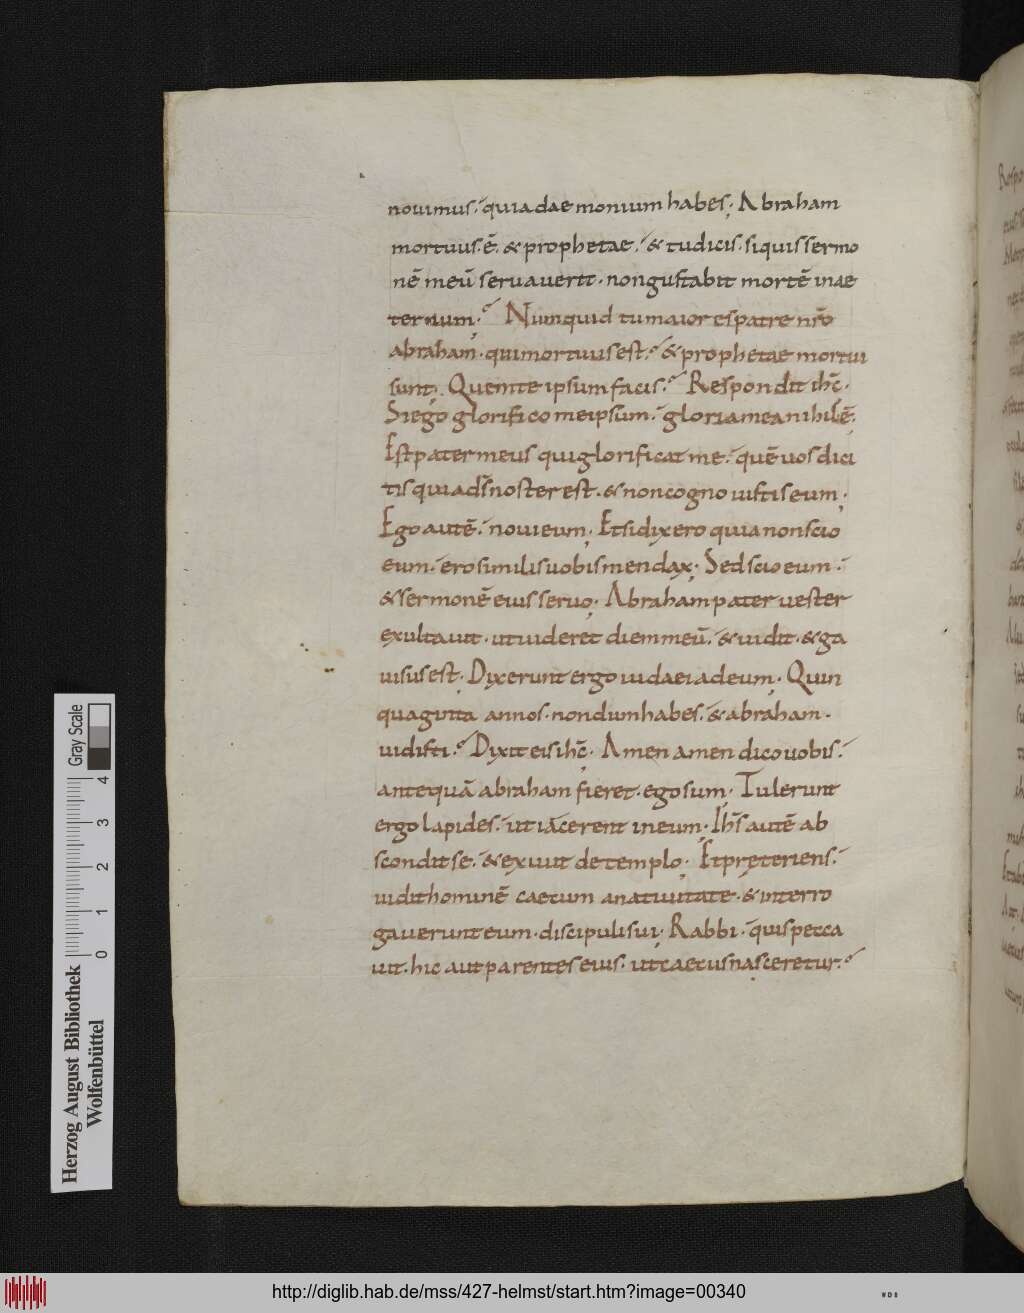 nouimus. quia daemonium habes; Abraham
mortuus. ē. & prophetae. & tu dicis. si quis sermo
nē meū seruauerit. non gustabit mortē in ae
ternum; Numquid tu maior es patre nr̄o
abraham. qui mortuus est. & prophetae mortui
sunt; Quem te ipsum facis. Respondit ih̄c.
Si ego glorifico me ipsum. gloria mea nihil ē;
Est pater meus qui glorificat me. quē uos dici
tis quia d̄s noster est. & non cognouistis eum;
Ego autē. noui eum; Et si dixero quia non scio
eum. ero similis uobis mendax; Sed scio eum.
& sermonē eius seruo; Abraham pater uester
exultauit. ut uideret diem meū. & uidit. & ga
uisus est; Dixerunt ergo iudaei ad eum; Quin
quaginta annos. nondum habes. & abraham.
uidisti. Dixit eis ih̄c; Amen amen dico uobis.
antequā abraham fieret. ego sum; Tulerunt
ergo lapides. ut iacerent in eum; Ih̄s autē ab
scondit se. & exiuit de templo; Et pręteriens.
uidit hominē caecum a natiuitate. & interro
gauerunt eum. discipuli sui; Rabbi. quis pecca
uit. hic aut parentes eius. ut caecus nasceretur.
Herzog August Bibliothek
Wolfenbüttel
0 1 2 3 4
Gray Scale
http://diglib.hab.de/mss/427-helmst/start.htm?image=00340